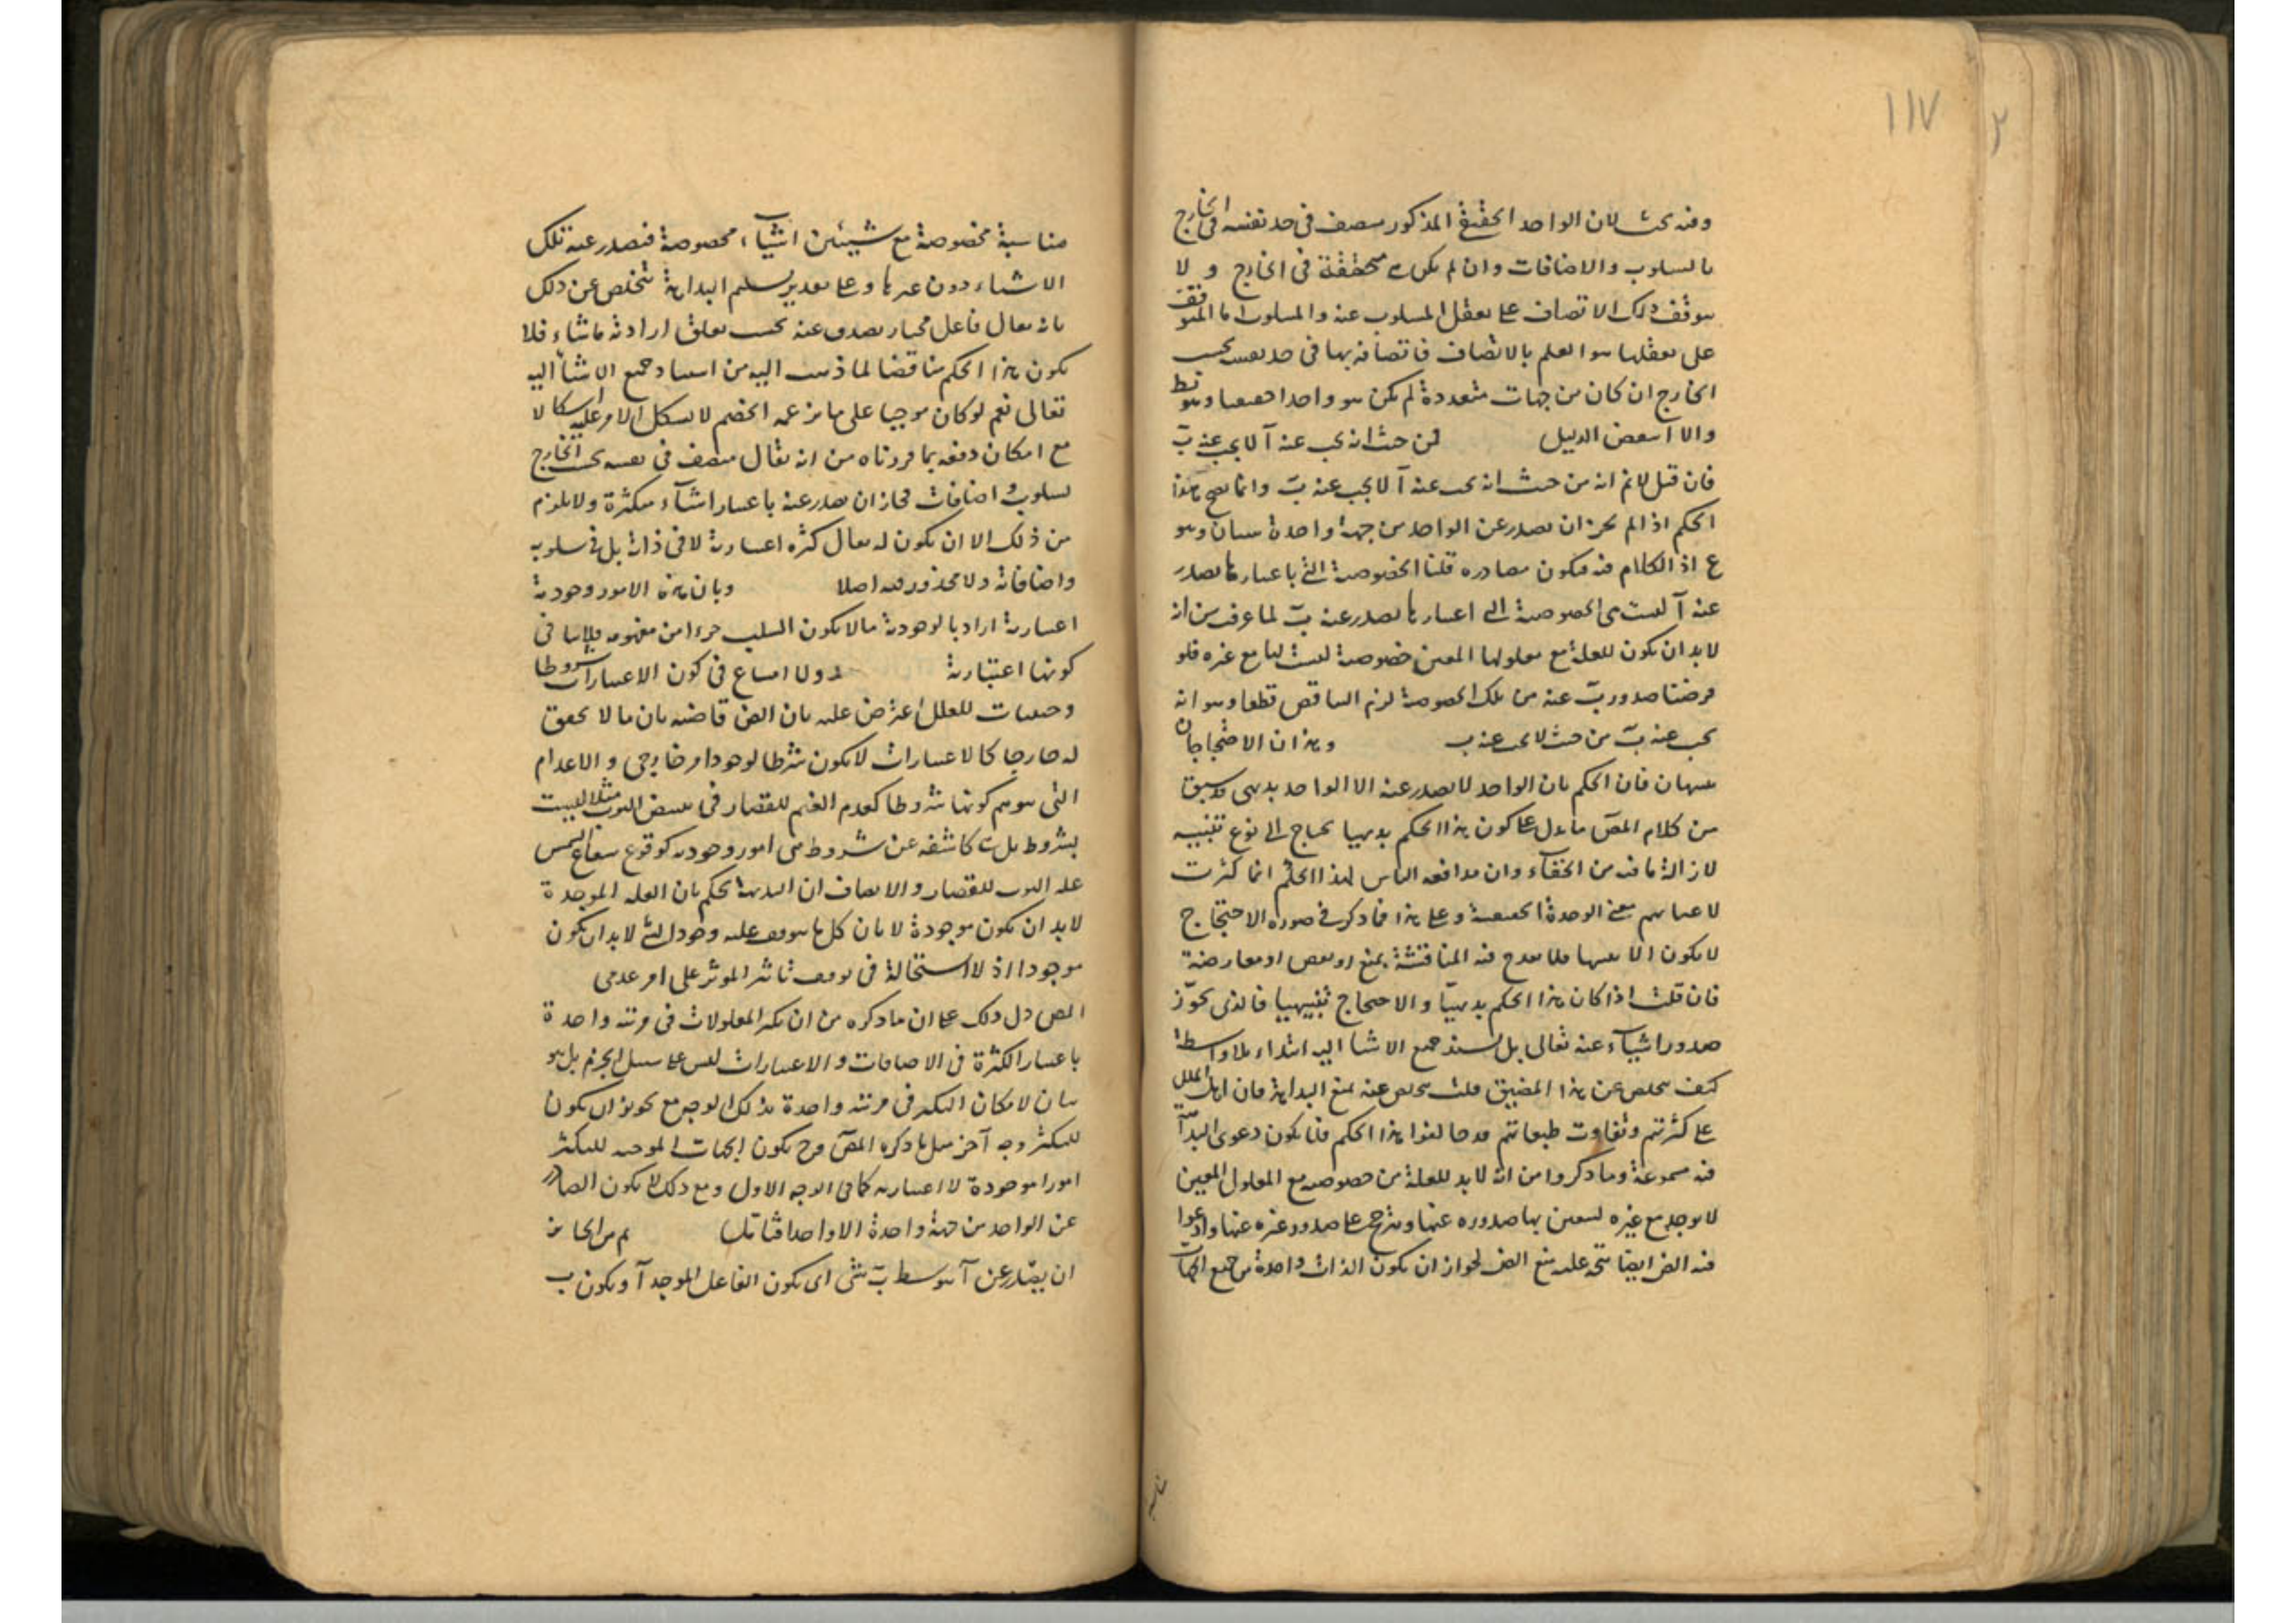 ١١٧
٢
وفيه بحث لان الواحد الحقيقي المذكور متصف في حد نفسه في الخارج
بالسلوب والاضافات وان لم يكن هي متحققة في الخارج و لا
يتوقف ذلك الاتصاف على تعقل المسلوب عنه والمسلوب اما المتوقف
على تعقلها هو العلم بالاتصاف فاتصافه بها في حد نفسه بحسب
الخارج ان كان من جهات متعددة لم يكن هو واحدا حقيقيا وهو بط
والا انتقض الدليل فمن حيث انه يجب عنه آ لا يجب عنه ب
فان قيل لانم انه من حيث انه يجب عنه آ لا يجب عنه ب وانما يصح هذا
الحكم اذا لم يجز ان يصدر عن الواحد من جهة واحدة شيئان وهو
ع اذ الكلام فيه فيكون مصادره قلنا الخصوصية التي باعتبارها يصدر
عنه آ ليست هي الخصوصية التي اعتبارها يصدر عنه ب لما عرفت من انه
لابد ان يكون للعلة مع معلولها المعين خصوصية ليست لها مع غيره فلو
فرضنا صدور ب عنه من تلك الخصوصية لزم التناقض قطعا وهو انه
يجب عنه ب من حيث لا يجب عنه ب وهذان الاحتجاجان
تنبيهان فان الحكم بان الواحد لا يصدر عنه الا الواحد بديهي وسبق
من كلام المص ما يدل على كون هذا الحكم بديهيا يحتاج الى نوع تنبيه
لازالة ما فيه من الخفاء وان مدافعة الناس لهذا الحكم انما كثرت
لاغفالهم معنى الوحدة الحقيقية وعلى هذا فما ذكر في صورة الاحتجاج
لا يكون الا تنبيها فلا يقدح فيه المناقشة بمنع او نقض او معارضة
فان قلت اذا كان هذا الحكم بديهيا والاحتجاج تنبيهيا فالذي يجوز
صدور اشياء عنه تعالى بل يسند جميع الاشياء اليه ابتداء بلا واسطة
كيف يتخلص عن هذا المضيق قلت يتخلص عنه بمنع البداهة فان اهل الملل
على كثرتهم وتفاوت طبقاتهم قد خالفوا هذا الحكم فلا يكون دعوى البداهة
فيه مسموعة وما ذكروا من انه لا بد للعلة من خصوصية مع المعلول المعين
لا يوجد مع غيره ليتعين بها صدوره عنها ويترجح على صدور غيره عنها وادعوا
فيه الض ايضا يتجه عليه منع الض لجواز ان يكون الذات واحدة من جميع الجهات
مناسبة
مناسبة مخصوصة مع شيئين اشياء مخصوصة فيصدر عنه تلك
الاشياء دون غيرها وعلى تقدير تسليم البداهة يتخلص عن ذلك
بانه تعالى فاعل مختار يصدر عنه بحسب تعلق ارادته ماشاء فلا
يكون هذا الحكم مناقضا لما ذهب اليه من استناد جميع الاشياء اليه
تعالى نعم لو كان موجبا على ما يزعمه الخصم لاشكل الامر عليه اشكالا
مع امكان دفعه بما قررناه من انه يقال متصف في نفسه بحسب الخارج
بسلوب واضافات فجاز ان يصدر عنه باعتبار اشياء متكثرة ولا يلزم
من ذلك الا ان يكون له تعالى كثرة اعتبارية لا في ذاته بل في سلوبه
واضافاته ولا محذور فيه اصلا وبان هذه الامور وجودية
اعتبارية اراد بالوجودية مالا يكون السلب جزءا من مفهومه فلا ينافي
كونها اعتبارية ولا امتناع في كون الاعتبارات شروطا
وحيثيات للعلل اعترض عليه بان الض قاضية بان ما لا تحقق
له خارجا كالاعتبارات لا يكون شرطا لوجود امر خارجي والاعدام
التي يتوهم كونها شروطا كعدم الغيم للقصار في تبييض الثوب مثلا ليست
بشروط بل هي كاشفة عن شروط هي امور وجودية كوقوع شعاع الشمس
على الثوب للقصار والانصاف ان البديهة يحكم بان العلة الموجدة
لابد ان يكون موجودة لا بان كل ما يتوقف عليه وجود الشي لابد ان يكون
موجودا اذ لا استحالة في توقف تاثير الموثر على امر عدمي
المص دل ذلك على ان ما ذكره من ان تكثر المعلولات في مرتبة واحدة
باعتبار الكثرة في الاضافات والاعتبارات ليس على سبيل الجزم بل هو
بيان لامكان التكثر في مرتبة واحدة بذلك الوجه مع تجويز ان يكون
للتكثر وجه آخر مثل ما ذكره المص وح يكون الجهات الموجبة للتكثر
امورا موجودة لا اعتبارية كما في الوجه الاول ومع ذلك لا يكون الصادر
عن الواحد من جهة واحدة الا واحدا فتامل ثم من الجائز
ان يصدر عن آ بتوسط ب شي اى يكون الفاعل الموجد آ ويكون ب